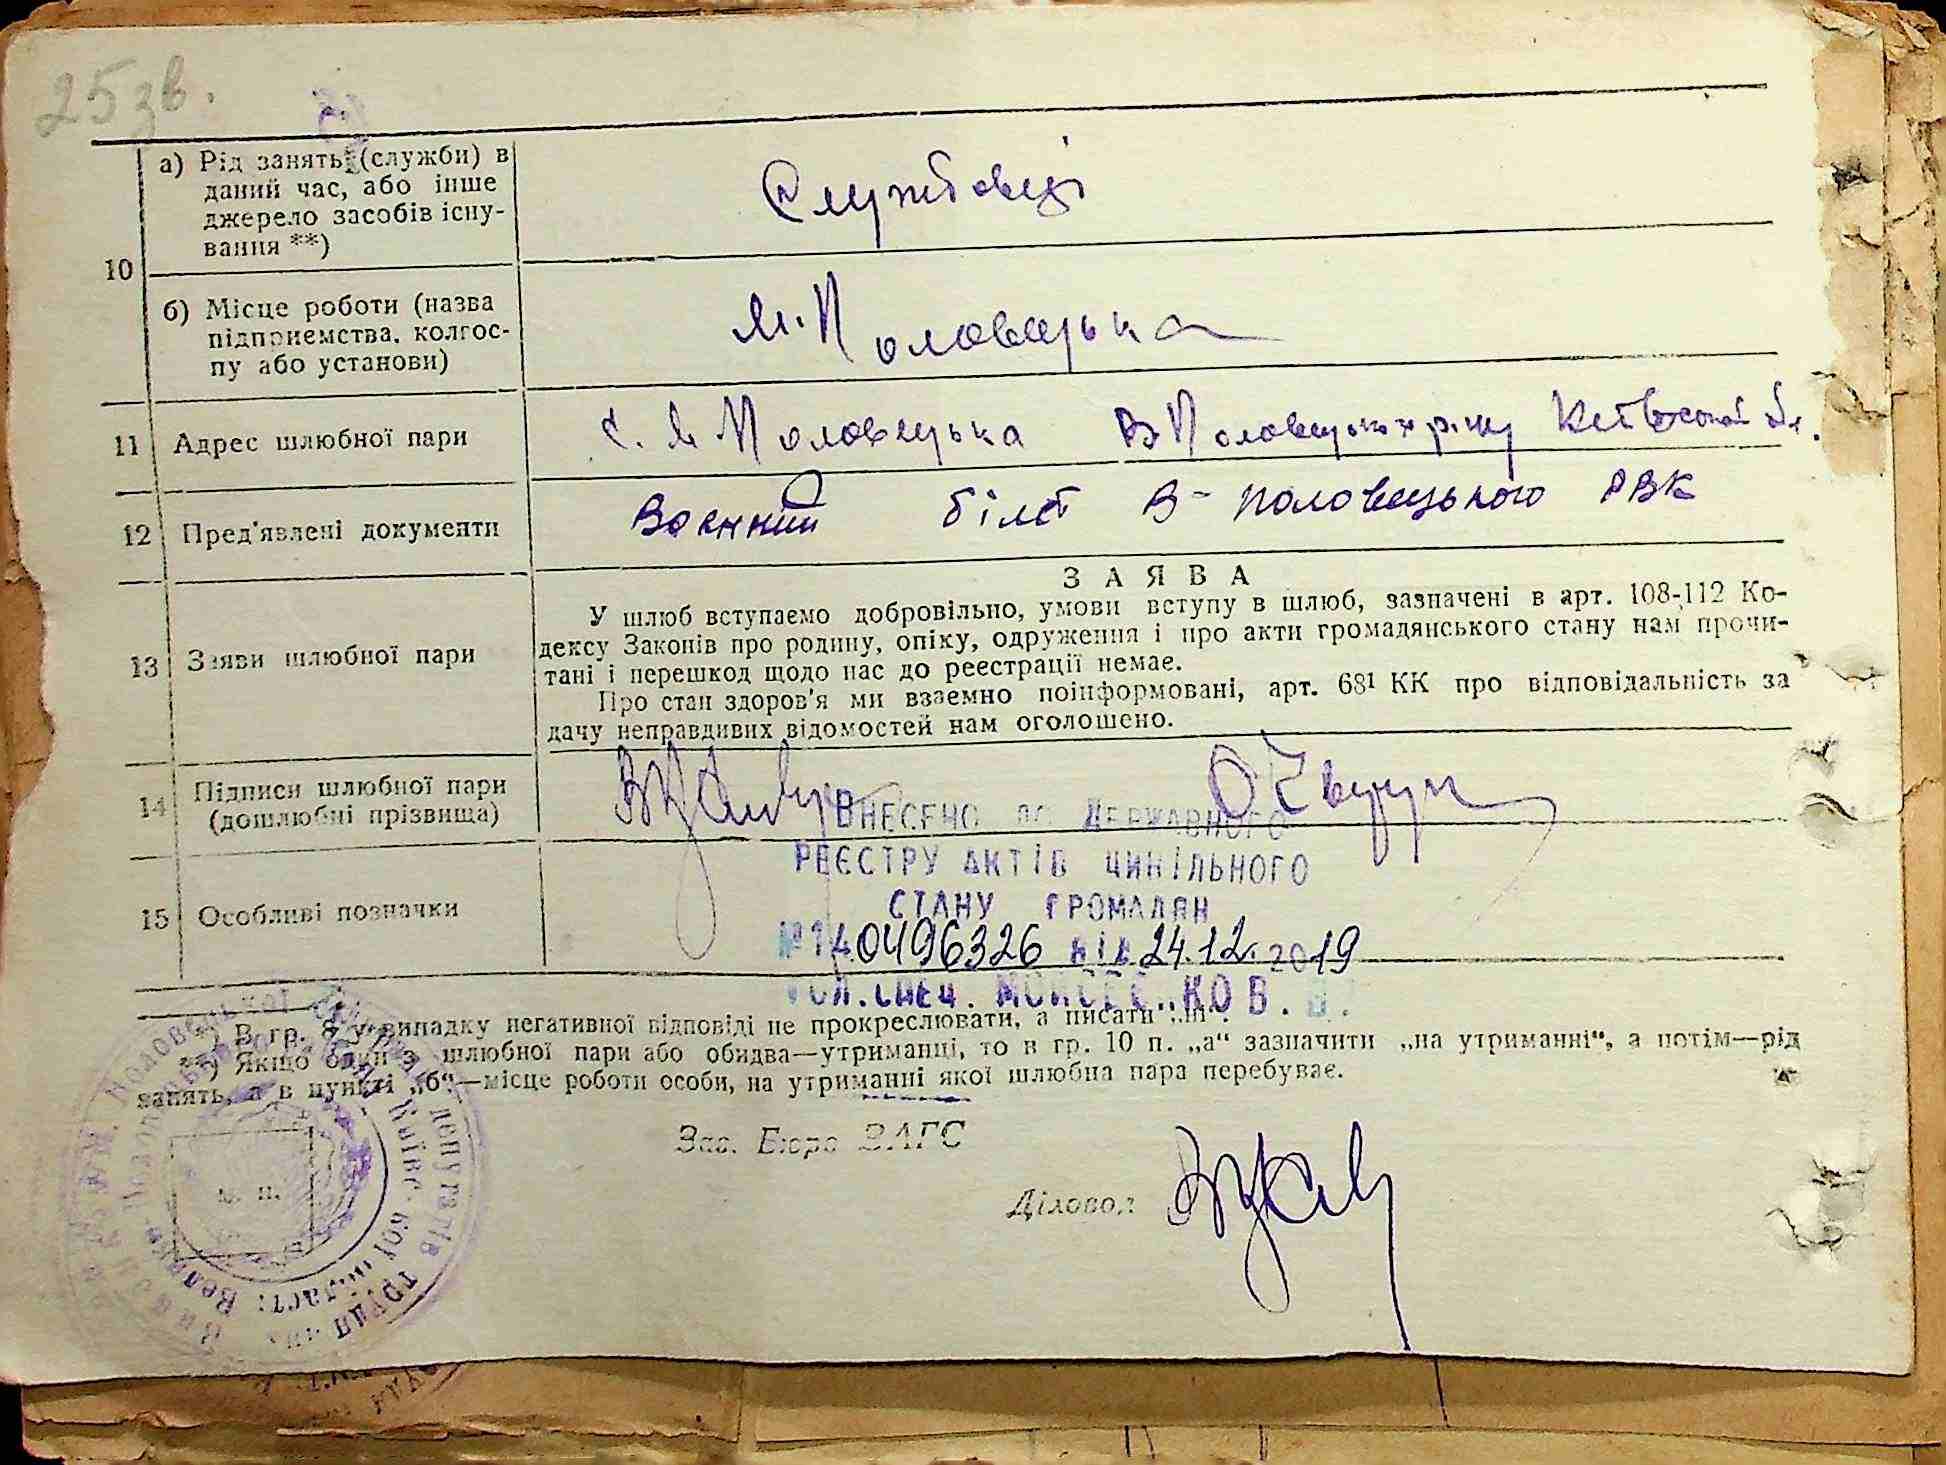 25 зв.
10
а) Рід занять (служби) в
даний час, або інше
джерело засобів існу-
вання **)
Службовці
б) Місце роботи (назва
підприємства, колгос-
пу або установи)
М. Половецька
11 Адрес шлюбної пари
с. М Половецька В Половецького р-ну Київської обл.
12 Пред'явлені документи
Воєнний білєт В-Половецького РВК
13 Заяви шлюбної пари
ЗАЯВА
У шлюб вступаємо добровільно, умови вступу в шлюб, зазначені в арт. 108-112 Ко-
дексу Законів про родину, опіку, одруження і про акти громадянського стану нам прочи-
тані і перешкод щодо нас до реєстрації немає.
Про стан здоров'я ми взаємно поінформовані, арт. 68¹ КК про відповідальність за
дачу неправдивих відомостей нам оголошено.
14 Підписи шлюбної пари
(дошлюбні прізвища)
ВНЕСЕНО ДО ДЕРЖАВНОГО
РЕЄСТРУ АКТІВ ЦИВІЛЬНОГО
СТАНУ ГРОМАДЯН
15 Особливі позначки
від 24.12.2019
*) В гр. 8 у випадку негативної відповіді не прокреслювати, а писати „ні“.
**) Якщо один з шлюбної пари або обидва—утриманці, то в гр. 10 п. „а“ зазначити „на утриманні“, а потім—рід
занять, а в пункті „б“—місце роботи особи, на утриманні якої шлюбна пара перебуває.
Зав. Бюро ЗАГС
м. п.
Діловод